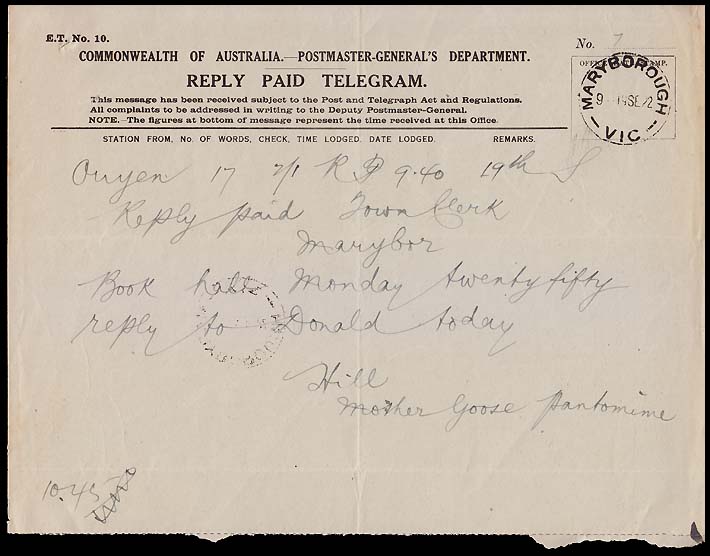 E.T. No. 10.
No. 7
COMMONWEALTH OF AUSTRALIA.—POSTMASTER-GENERAL'S DEPARTMENT.
REPLY PAID TELEGRAM.
This message has been received subject to the Post and Telegraph Act and Regulations.
All complaints to be addressed in writing to the Deputy Postmaster-General.
NOTE.—The figures at bottom of message represent the time received at this Office.
MARYBOROUGH
VIC
STATION FROM, No. OF WORDS, CHECK, TIME LODGED, DATE LODGED. REMARKS.
Ouyen 17 2/1 R P 9.40 19th S
Reply paid Town Clerk
Marybor
Book hall Monday twenty fifty
reply to Donald today
Hill
Mother Goose Pantomime
10.45